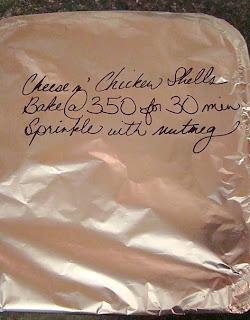 Cheese n' Chicken Shells
Bake @ 350 for 30 min
Sprinkle with nutmeg